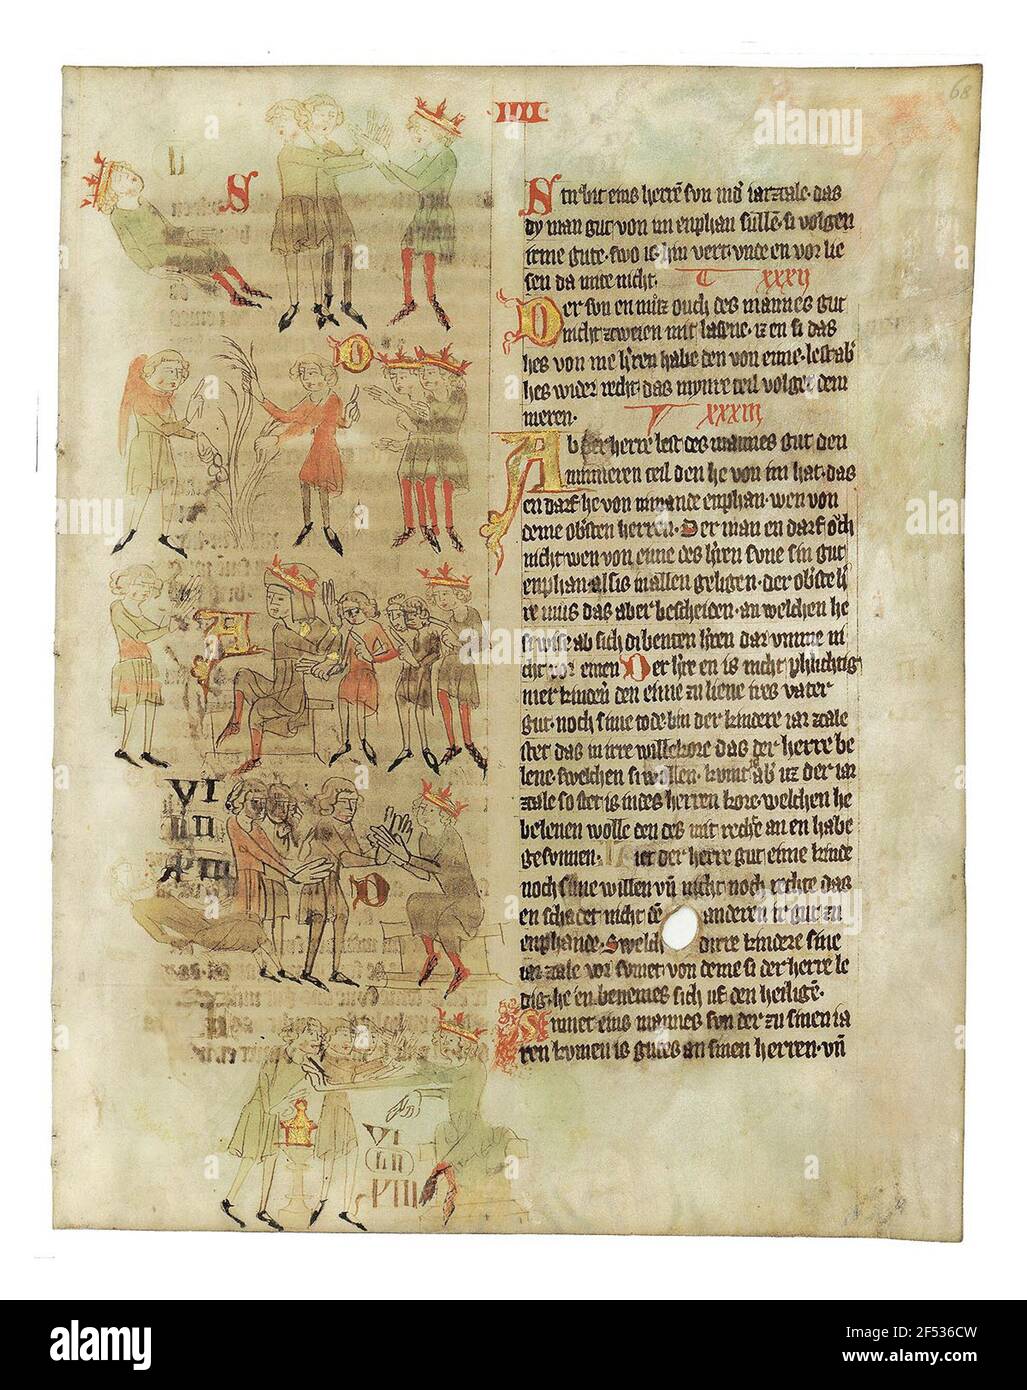 68
IIII
Stirbit eins herrē son īnō iarzale · das
dy man gut von im enphan sullē · si volgen
irme gute · swo is hin vert · vnde en vorlie
sen da mite nicht · xxxii
Der son en muz ouch des mannes gut
nicht zcweien mit lasene · iz en si das
hes von me hrren habe den von eime · lest ab
hes wider recht · das mynre teil volget dem
meren · xxxiii
Ab der herre lest des mannes gut den
minneren teil den he von im hat · das
en darf he von nimande enphan · wen von
deme obirsten herren · Der man en darf och
nicht wen von eime des hrren sone sin gut
enphan · al is in allen geligen · der obirste h
re mus das aber bescheiden · an welchen he
si wise ab sich di benten hrren dar vmme ni
cht vor einen Der hrre en is nicht phlichtig
met kinderen den eime zu liene ires vater
gut · noch sime tode · bin der kindere iarzcale
stet das in irre willekore das der herre be
lene · swelchen si wollen · kumt ab uz der iar
zcale so stet is in des herren kore · welchen he
belenen wolle den des mit rechte an en habe
gesonnen · Liet der herre gut eime kinde
noch sime willen vn nicht noch rechte das
en schadet nicht de anderen ir gut zu
enphande · Swelch dirre kindere sine
iar zale vor sumet · von deme si der herre le
dig · he en beneme s sich uf den heiligē ·
Kumet eins mannes son der zu sinen ia
ren komen is gutes an sinen herren · vn
S
D
A
VI
LII
D
VI
LII
alamy
Image ID: 2F536CW
www.alamy.com